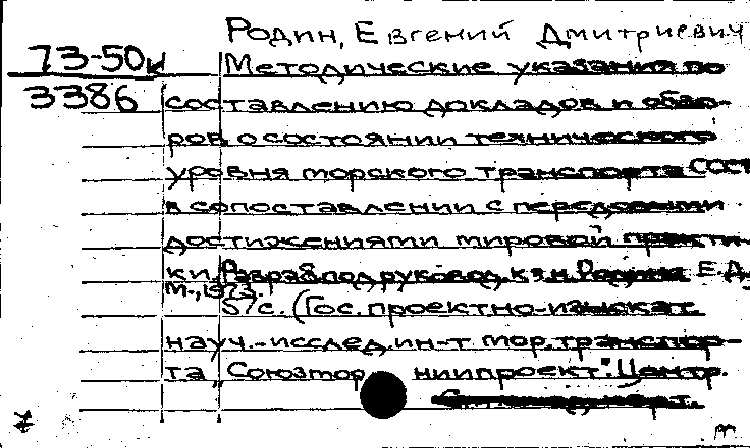 Родин, Евгений Дмитриевич
73-50к
Методические указания по
3386
составлению докладов и обзо-
ров о состоянии технического
уровня морского транспорта СССР
в сопоставлении с передовыми
достижениями мировой практи-
ки. Разраб. под руковод. к.э.н. Родина Е.Д.
М., 1973.
57с. (Гос. проектно-изыскат.
науч.-исслед. ин-т мор. транспор-
та „Союзмор нии проект". Центр.